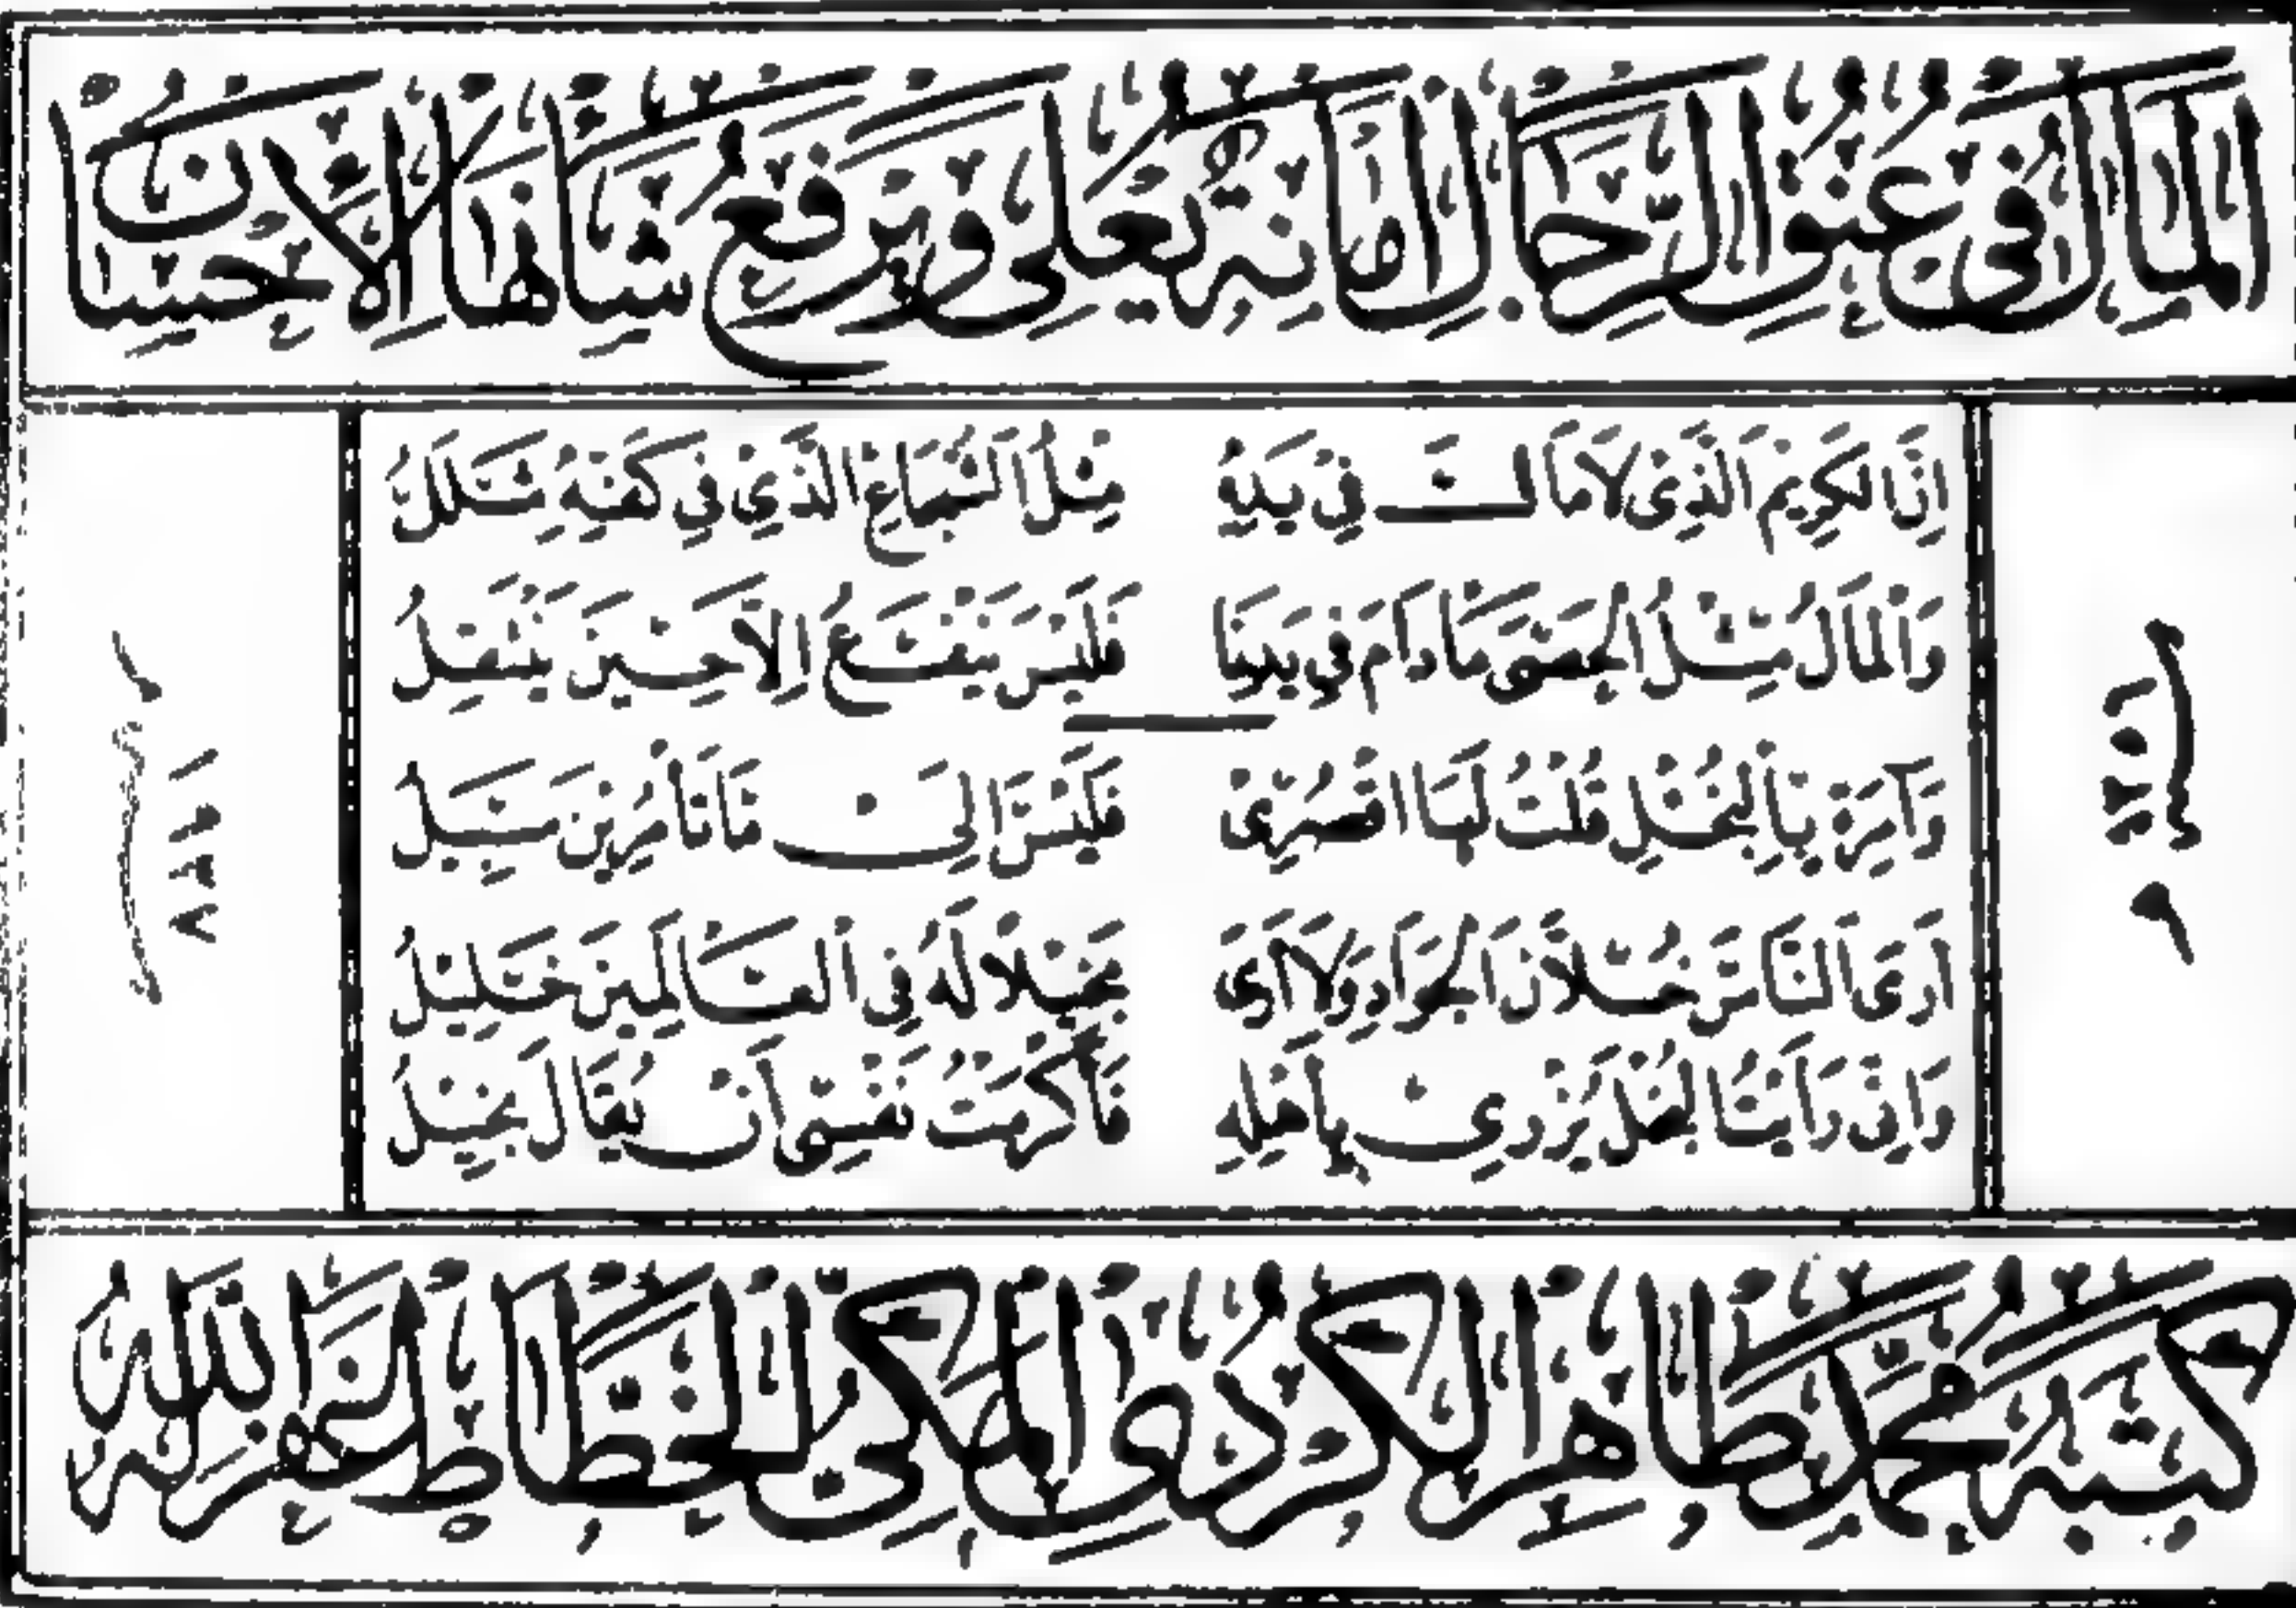 الْمَالُ فِي عُنُقِ الرِّجَالِ أَمَانَةٌ يُعْلِي وَيَرْفَعُ شَأْنَهَا الْإِحْسَانُ
إِنَّ الْكَرِيمَ الَّذِي لَا مَالَ فِي يَدِهِ مِثْلُ الشُّجَاعِ الَّذِي فِي كَفِّهِ شَلَلُ
وَالْمَالُ مِثْلُ الْحَصَى مَا دَامَ فِي يَدِنَا فَلَيْسَ يَنْفَعُ إِلَّا حِينَ يَنْتَقِلُ
وَآمِرَةٍ بِالْبُخْلِ قُلْتُ لَهَا اقْصُرِي فَلَيْسَ إِلَى مَا تَأْمُرِينَ سَبِيلُ
أَرَى النَّاسَ خُلَّانَ الْجَوَادِ وَلَا أَرَى بَخِيلًا لَهُ فِي الْعَالَمِينَ خَلِيلُ
وَإِنِّي رَأَيْتُ الْبُخْلَ يُزْرِي بِأَهْلِهِ فَأَكْرَمْتُ نَفْسِي أَنْ يُقَالَ بَخِيلُ
كَتَبَهُ مُحَمَّد طَاهِر الْكُرْدِي الْمَكِّي الْخَطَّاط